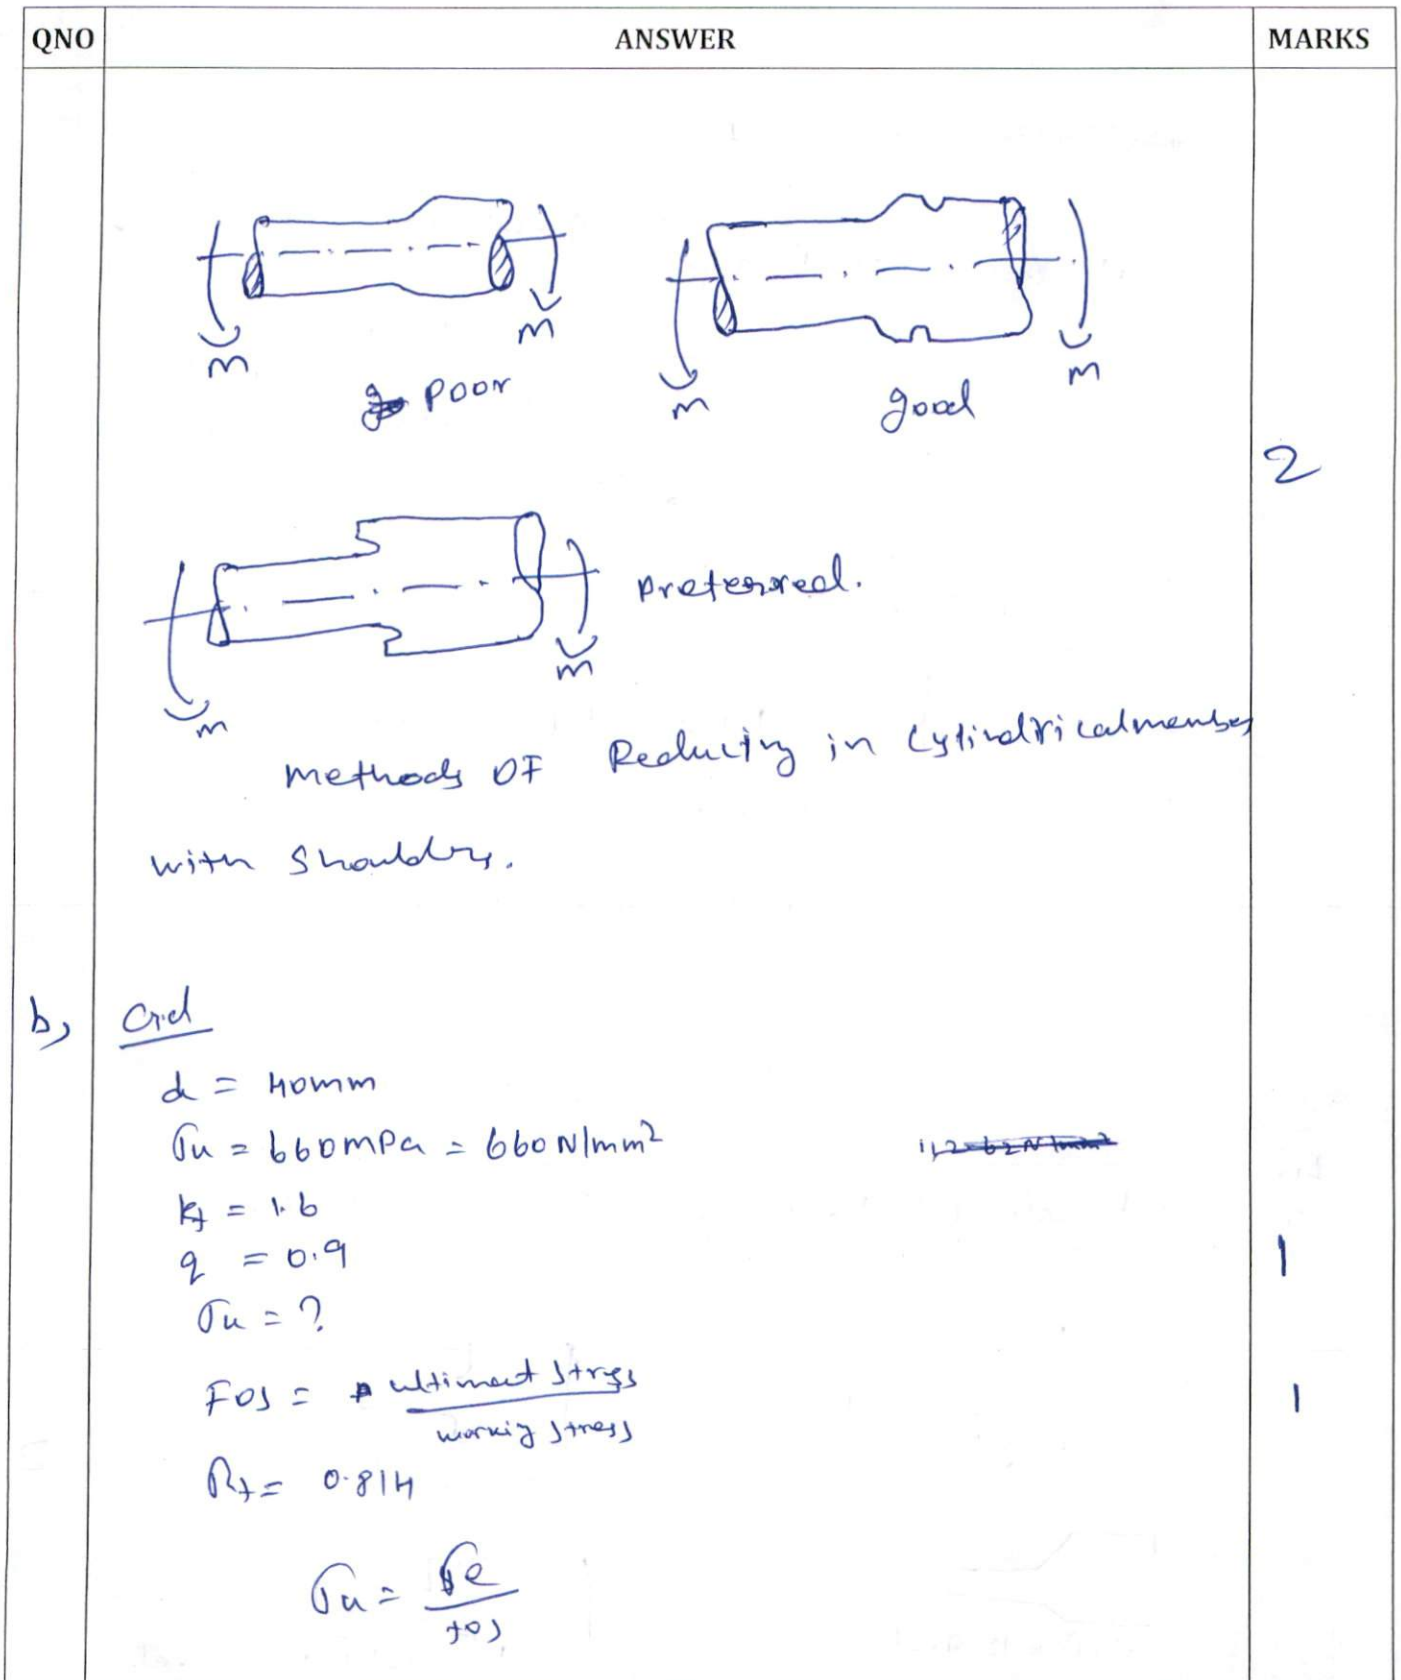 QNO ANSWER MARKS
M M M M
Poor good
2
Preferred.
M M
Methods OF Reducing in Cylindrical member
with Shoulders.
b, Gd
d = 40mm
σu = 660MPa = 660N/mm²
kt = 1.6
q = 0.9
1
σu = ?
FOS = ultimeat stress
workig stress
1
Rt = 0.814
σu = σe
fos